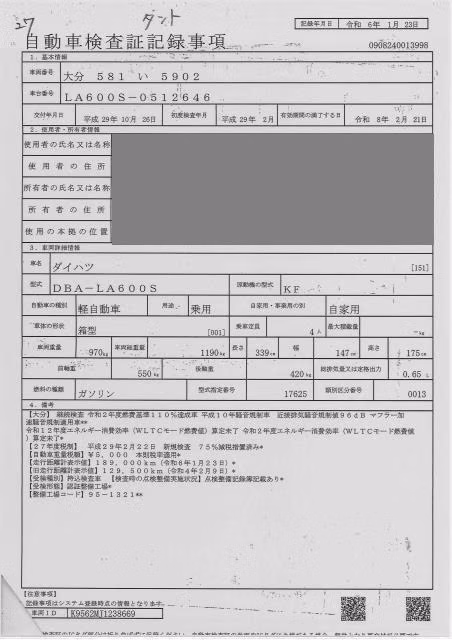 27 タント
記録年月日 令和 6年 1月 23日
自動車検査証記録事項
0908240013998
1. 基本情報
車両番号 大分 581 い 5902
車台番号 LA600S-0512646
交付年月日 平成 29年 10月 26日 初度検査年月 平成 29年 2月 有効期間の満了する日 令和 8年 2月 21日
2. 使用者・所有者情報
使用者の氏名又は名称
使用者の住所
所有者の氏名又は名称
所有者の住所
使用の本拠の位置
3. 車両詳細情報
車名 ダイハツ [151]
型式 DBA-LA600S 原動機の型式 KF
自動車の種別 軽自動車 用途 乗用 自家用・事業用の別 自家用
車体の形状 箱型 [001] 乗車定員 4人 最大積載量 -kg
車両重量 970kg 車両総重量 1190kg 長さ 339cm 幅 147cm 高さ 175cm
前軸重 550kg 後軸重 420kg 総排気量又は定格出力 0.65 L
燃料の種類 ガソリン 型式指定番号 17625 類別区分番号 0013
4. 備考
【大分】 継続検査 令和2年度燃費基準110%達成車 平成10年騒音規制車 近接排気騒音規制値96dB マフラー加
速騒音規制適用車**
令和12年度エネルギー消費効率(WLTCモード燃費値)算定未了 令和2年度エネルギー消費効率(WLTCモード燃費値
)算定未了*
【27年度税制】 平成29年2月22日 新規検査 75%減税措置済み*
【自動車重量税額】¥5,000 本則税率適用*
【走行距離計表示値】189,000km(令和6年1月23日)*
【旧走行距離計表示値】129,500km(令和4年2月9日)*
【受検種別】持込検査車 【検査時の点検整備実施状況】点検整備記録簿記載あり*
【受検形態】認証整備工場*
【整備工場コード】95-1321**
【注意事項】
記録事項はシステム登録時点の情報となります。
車両ID K9562MJ1238669